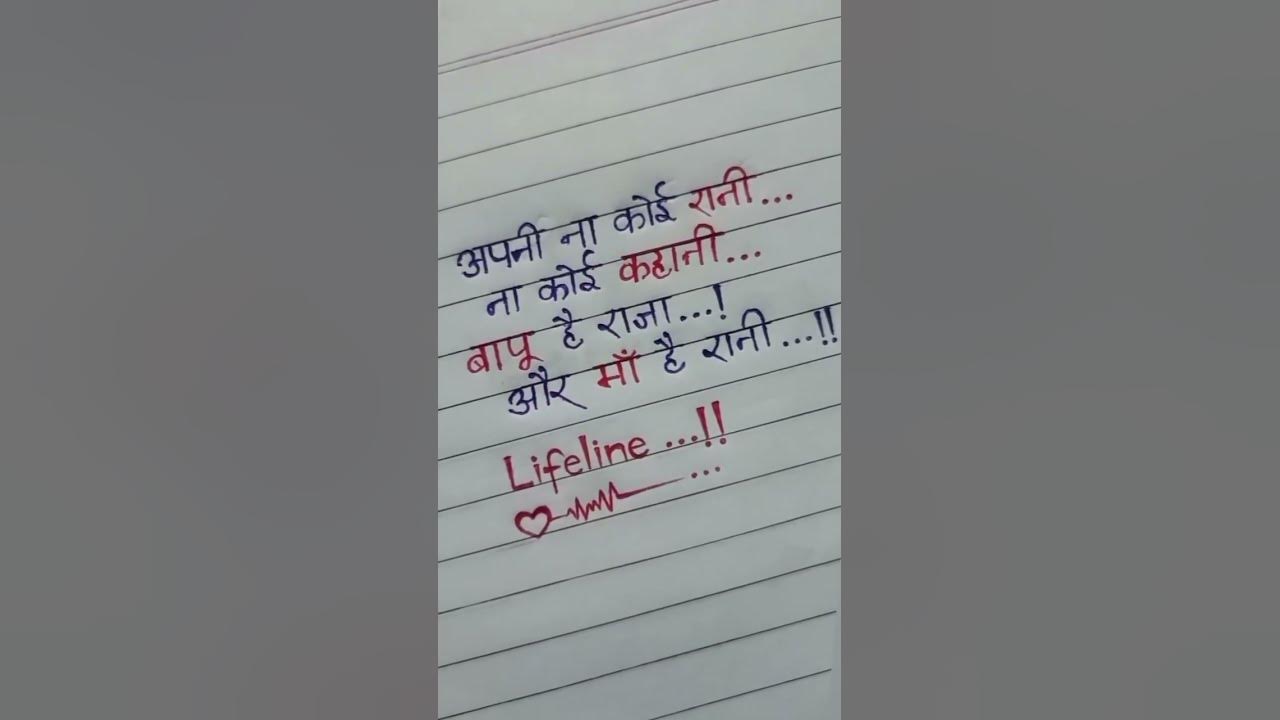 अपनी ना कोई रानी...
ना कोई कहानी...
बापू है राजा...!
और माँ है रानी...!!
Lifeline ...!!